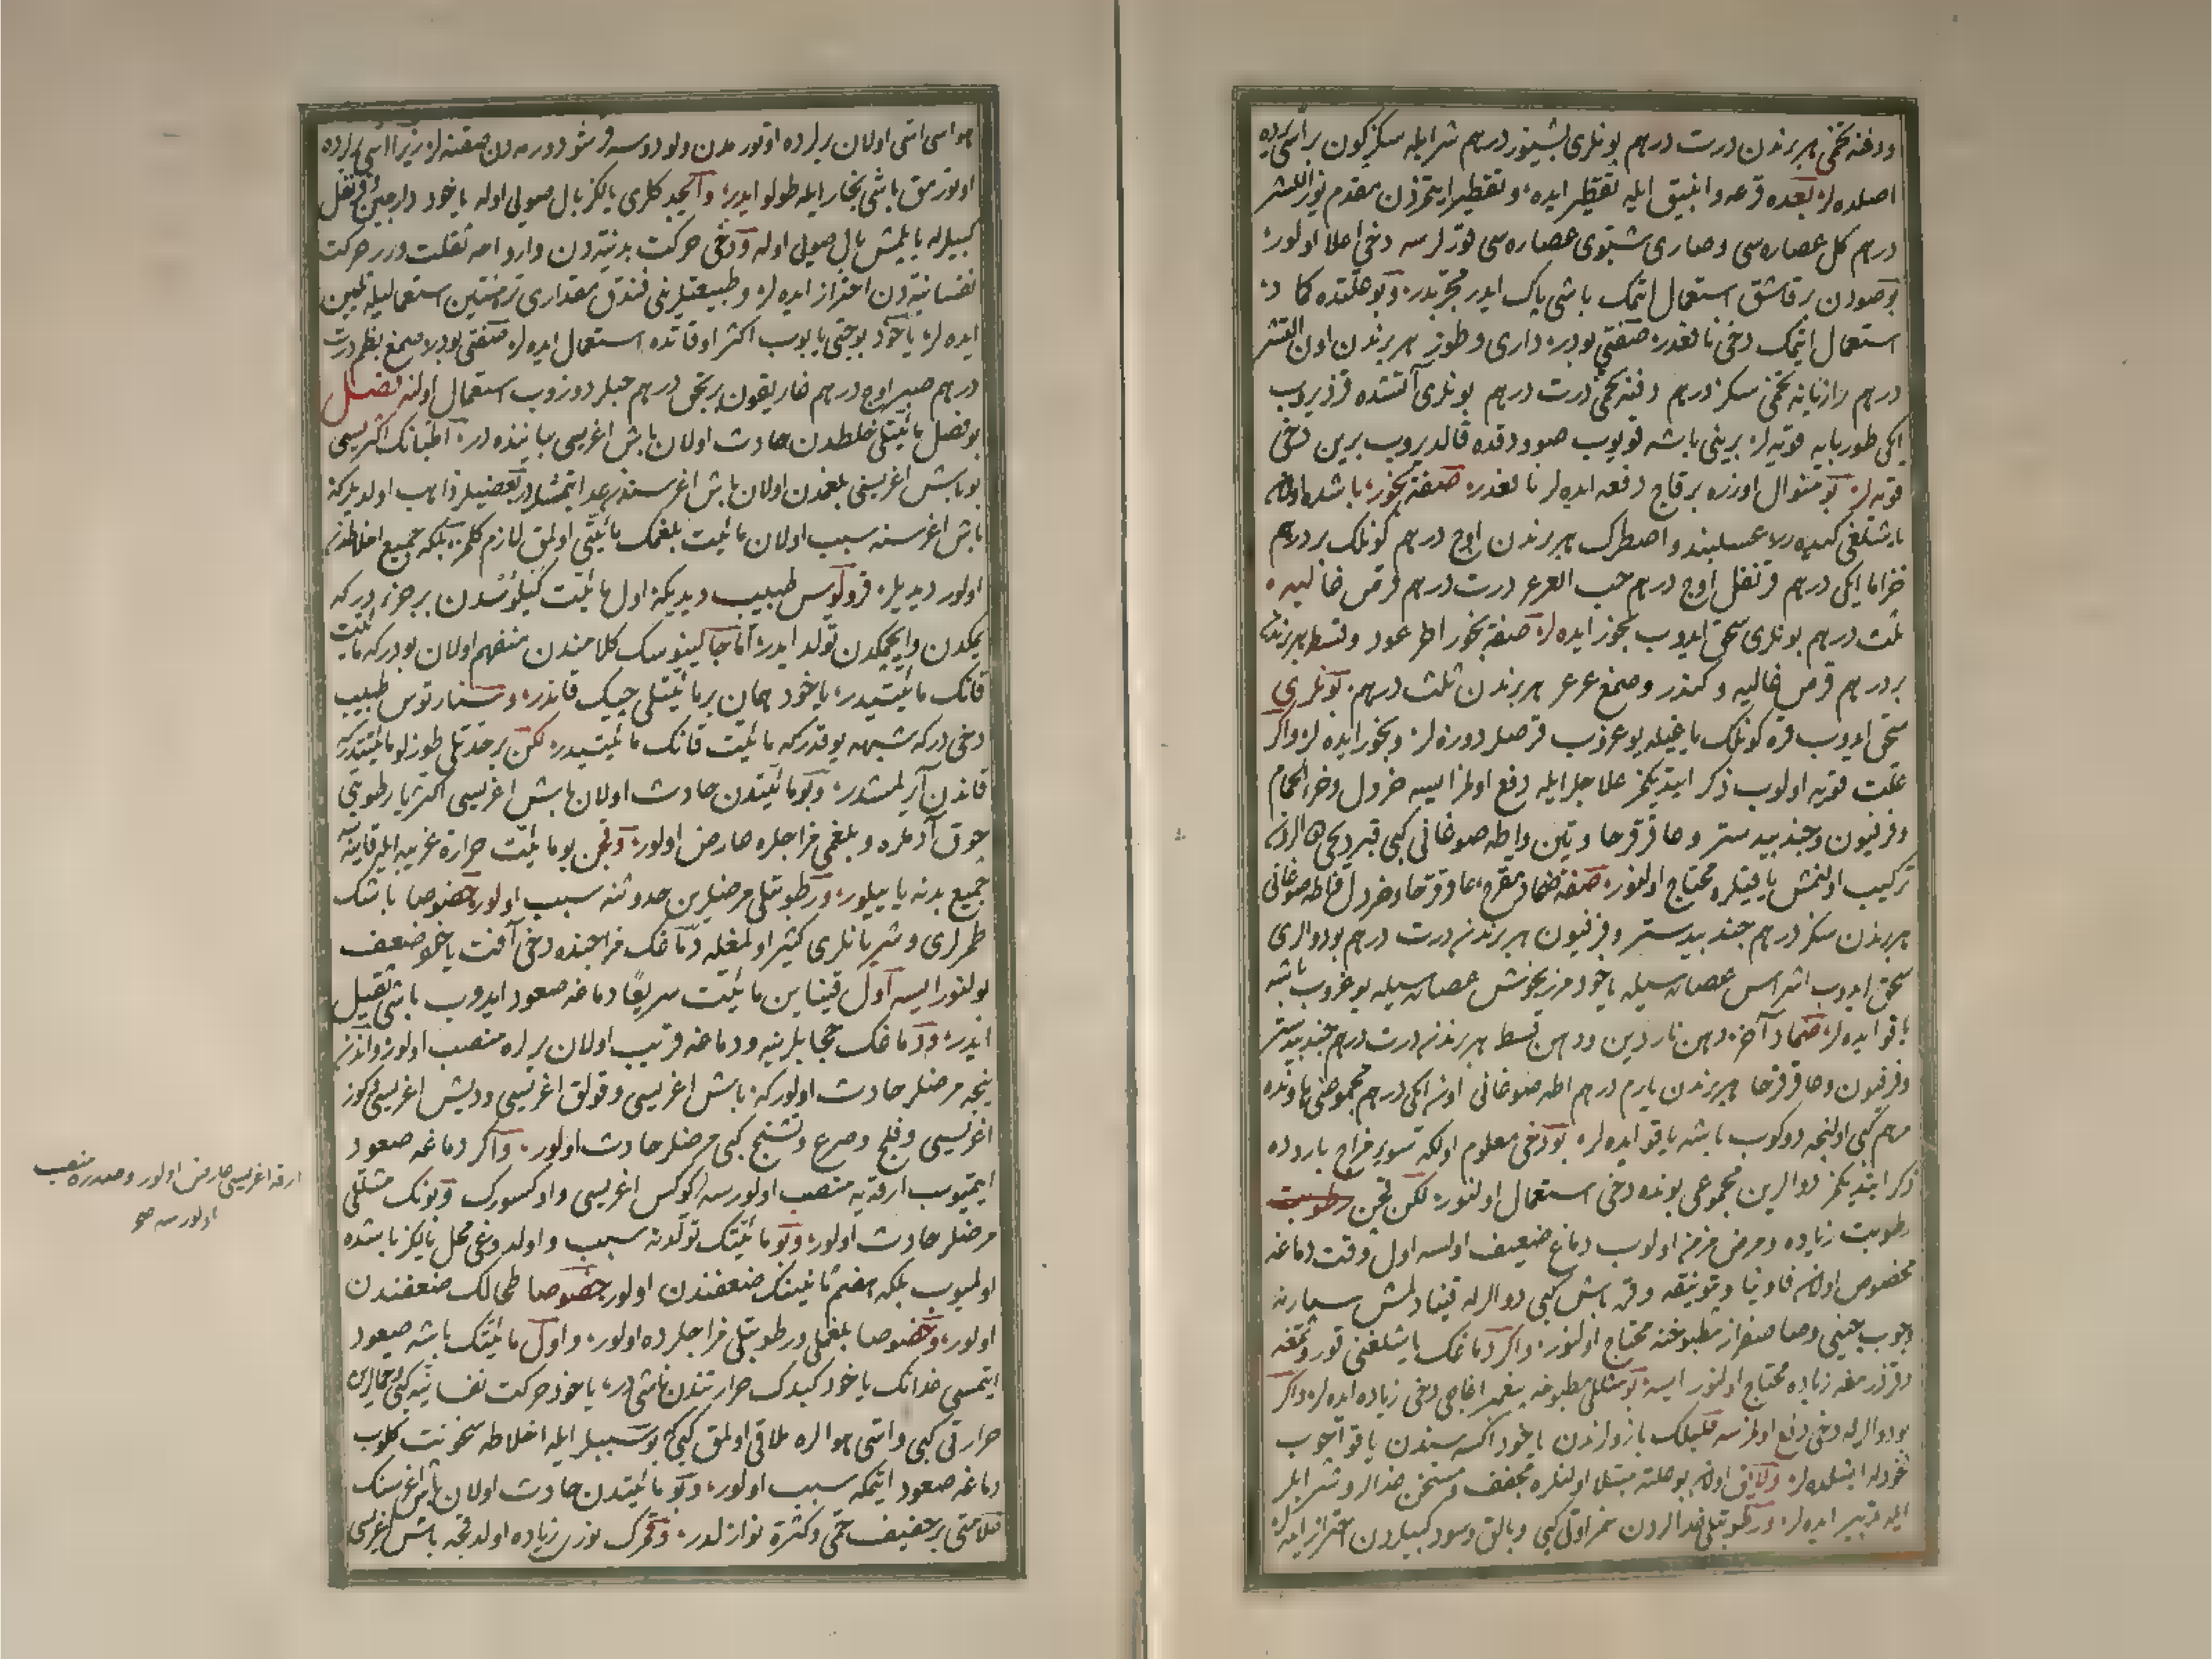 ودفنه تخمی هر برندن درت درهم بونلری بشیوز درهم شرابله سکز کون بر اسی یرده
اصلده لر بعده قرعه و انبیق ایله تقطیر ایده و تقطیر ایتمزدن مقدم یوز اللیشر
درهم کل عصاره سی و صاری شبوی عصاره سی قوزلرسه دخی اعلا اولور
بو صودن بر قاشق استعمال ایتمک باشی پاک ایدر مجربدر و بو علتده کماد
استعمال ایتمک دخی نافعدر صنعتی بودر داری و طوز هر برندن اون التیشر
درهم رازیانه تخمی سکز درهم دفنه تخمی درت درهم بونلری آتشده قزدیروب
ایکی طوربایه قویه لر برینی باشه قویوب صوودقده قالدیروب برین دخی
قویه لر بو منوال اوزره برقاج دفعه ایده لر نافعدر صفة بخور باشده اولان
یاشلغی کیدرر عسلبند و اصطرک هر برندن اوج درهم کونلک بر درهم
خزاما ایکی درهم قرنفل اوج درهم حب العرعر درت درهم قرص غالیه
ثلث درهم بونلری سحق ایدوب بخور ایده لر صفة بخور اخر عود و قسط هر برندن
بر درهم قرص غالیه و کندر و صمغ عرعر هر برندن ثلث درهم بونلری
سحق ایدوب قره کونلک یاغیله یوغروب قرصلر دوزه لر و بخور ایده لر و اکر
علت قویه اولوب ذکر ایتدیکمز علاجلر ایله دفع اولمز ایسه خردل و خرء الحمام
وفرفیون وجندبیدستر و عاقرقرحا و تین و اطه صوغانی کبی
ترکیب اولنمش یاقیلره محتاج اولنور صفة ضماد مقرح عاقرقرحا و خردل و اطه صوغانی
هر برندن سکز درهم جندبیدستر و فرفیون هر برندن درت درهم بو دوالری
سحق ایدوب اشراس عصاره سیله یاخود مرزنخوش عصاره سیله یوغروب باشه
یاقو ایده لر ضماد آخر دهن ناردین و دهن قسط هر برندن درت درهم جندبیدستر
وفرفیون و عاقرقرحا هر برندن یارم درهم اطه صوغانی اون ایکی درهم مجموعنی هاونده
مرهم کبی اولنجه دوکوب باشه یاقو ایده لر بو دخی معلوم اولکه سوء مزاج بارده ده
ذکر ایتدیکمز دوالرین مجموعی بونده دخی استعمال اولنور لکن قچن رطوبت
رطوبت زیاده و مرض مزمن اولوب دماغ ضعیف اولسه اول وقت دماغه
مخصوص اولان فاوینا و بتونیقه و قره باش کبی دوالرله قینادلمش سپارنه
و چوب چینی و صاصفراز مطبوخنه محتاج اولنور و اکر دماغک یاشلغنی قوروتمغه
و قزدرمغه زیاده محتاج اولنور ایسه بو مثللی مطبوخه پیغمبر اغاجی دخی زیاده ایده لر و اکر
بو دوالرله دخی دفع اولمزسه قلیلک بازولرندن یاخود اکسه سندن یاقو آچوب
و لایق اولان بو علته مبتلا اولنلره مجفف و مسخن غدالر و شرابلر
ایله تدبیر ایده لر و رطوبتلی غدالردن خمر اوتی کبی و بالق و سود کبیلردن احتراز ایده لر
هواسی اسی اولان یرلرده اوتورمدن ولودوسه قرشو دورمه دن صقنه لر زیرا اسی یرلرده
اوتورمق باشی بخار ایله طولو ایدر و ایچه جکلری یالکز بال صویی اوله یاخود دارچین و قرنفل
کبیلرله یاپلمش بال صویی اوله و دخی حرکت بدنیه دن و ارد امه ثقلت ورر حرکت
نفسانیه دن احتراز ایده لر و طبیعتلرینی فندق مقداری ترمنتین استعمالیله تلیین
ایده لر یاخود بو حبی یاپوب اکثر اوقاتده استعمال ایده لر صنعتی بودر صمغ بطم درت
درهم صبر اوج درهم غاریقون بر بچق درهم حبلر دوزوب استعمال اولنه فصل
بو فصل مائیتلی خلطدن حادث اولان باش اغریسی بیاننده در اطبانک اکثریسی
بو باش اغریسنی بلغمدن اولان باش اغریسندن عد ایتمشلردر بعضیلر ذاهب اولدیلرکه
باش اغریسنه سبب اولان مائیت بلغمک مائیتی اولمق لازم کلمز بلکه جمیع اخلاطدن
اولور دیدیلر قرولوس طبیب دیدیکه اول مائیت کیلوسدن بر جزء درکه
یمکدن و ایچمکدن تولد ایدر اما جالینوسک کلامندن منفهم اولان بودرکه مائیت
قانک مائیتیدر یاخود همان بر مائیتلی چیک قاندر و سنارتوس طبیب
دخی درکه شبهه یوقدرکه مائیت قانک مائیتیدر لکن بر حدتلی طوزلو مائیتدرکه
قاندن آیرلمشدر و بو مائیتدن حادث اولان باش اغریسی اکثریا رطوبتی
چوق آدملره و بلغمی مزاجلره عارض اولور و قچن بو مائیت حرارة غریبه ایله قاینه
جمیع بدنه یاییلور و رطوبتلی مرضلرین حدوثنه سبب اولور خصوصا باشک
طمرلری و شریانلری کثیر اولمغله دماغک مزاجنده دخی آفت یاخود ضعف
بولنور ایسه اول قینایان مائیت سریعا دماغه صعود ایدوب باشی ثقیل
ایدر و دماغک حجابلرینه و دماغه قریب اولان یرلره منصب اولور و اندن
نیجه مرضلر حادث اولورکه باش اغریسی و قولق اغریسی و دیش اغریسی و کوز
اغریسی و فلج و صرع و تشنج کبی مرضلر حادث اولور و اکر دماغه صعود
ایتمیوب ارقه یه منصب اولورسه کوکس اغریسی و اوکسورک و بونک مثللی
مرضلر حادث اولور و بو مائیتک تولدنه سبب و اولدوغی محل یالکز باشده
اولمیوب بلکه هضم ثانینک ضعفندن اولور خصوصا طلاک ضعفندن
اولور و خصوصا بلغملی و رطوبتلی مزاجلرده اولور و اول مائیتک باشه صعود
ایتمسی غدانک یاخود کبدک حرارتندن ناشیدر یاخود حرکت نفسانیه کبی و حمالرک
حرارتی کبی و اسی هوالره ملاقی اولمق کبی بو سببلر ایله اخلاطه سخونت کلوب
دماغه صعود ایتمکه سبب اولور و بو مائیتدن حادث اولان باش اغریسنک
علامتی بر خفیف حمی و کثرة نوازلدر و قمرک نوری زیاده اولدقجه باش اغریسی
ارقه اغریسی عارض اولور و صدره منصب
اولورسه صو